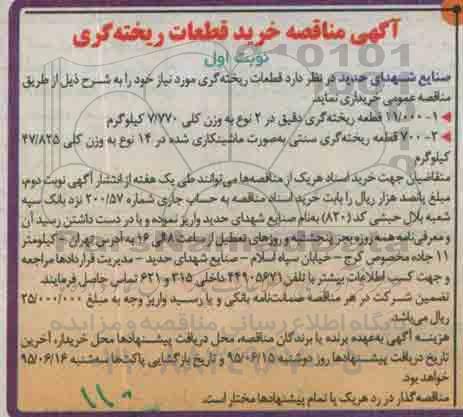 آگهی مناقصه خرید قطعات ریخته‌گری
نوبت اول
صنایع شهدای حدید در نظر دارد قطعات ریخته‌گری مورد نیاز خود را به شرح ذیل از طریق
مناقصه عمومی خریداری نماید.
۱- ۱۱/۰۰۰ قطعه ریخته‌گری دقیق در ۲ نوع به وزن کلی ۷/۷۷۰ کیلوگرم
۲- ۷۰۰ قطعه ریخته‌گری سنتی به‌صورت ماشینکاری شده در ۱۴ نوع به وزن کلی ۴۷/۸۲۵
کیلوگرم
متقاضیان جهت خرید اسناد هریک از مناقصه‌ها می‌توانند طی یک هفته از انتشار آگهی نوبت دوم،
مبلغ پانصد هزار ریال را بابت خرید اسناد مناقصه به حساب جاری شماره ۲۰۰/۵۷ نزد بانک سپه
شعبه بلال حبشی کد (۸۲۰) به‌نام صنایع شهدای حدید واریز نموده و با در دست داشتن رسید آن
و معرفی‌نامه همه روزه بجز پنجشنبه و روزهای تعطیل از ساعت ۸ الی ۱۶ به آدرس تهران - کیلومتر
۱۱ جاده مخصوص کرج - خیابان سپاه اسلام - صنایع شهدای حدید - مدیریت قراردادها مراجعه
و جهت کسب اطلاعات بیشتر با تلفن ۴۴۹۰۵۶۷۱ داخلی ۳۱۵ و ۶۲۱ تماس حاصل فرمایند.
تضمین شرکت در هر مناقصه ضمانت‌نامه بانکی و یا رسید واریز وجه به مبلغ ۲۵/۰۰۰/۰۰۰
ریال می‌باشد.
هزینه آگهی به‌عهده برنده یا برندگان مناقصه، محل دریافت پیشنهادها محل خریدار، آخرین
تاریخ دریافت پیشنهادها روز دوشنبه ۹۵/۰۶/۱۵ و تاریخ بازگشایی پاکت‌ها سه‌شنبه ۹۵/۰۶/۱۶
خواهد بود.
مناقصه‌گذار در رد هریک یا تمام پیشنهادها مختار است.